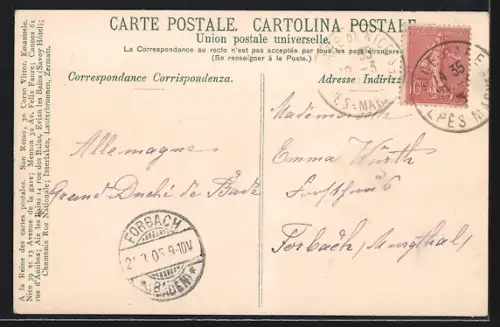 CARTE POSTALE. CARTOLINA POSTALE.
Union postale universelle.
La Correspondance au recto n'est pas acceptée par tous les pays étrangers
(Se renseigner à la Poste.)
Correspondance Corrispondenza.
Adresse Indirizzo
A la Reine des cartes postales. San Remo, 30 Corso Vittor. Emanuele.
Nice 39 et 13 Avenue de la gare; Menton 30 Av. Félix Faure; Cannes 61
rue d'Antibes; Aix les Bains 14 rue des Bains, Evian les Bains (Savoy Hôtel);
Chamonix Rue Nationale; Interlaken, Lauterbrunnen, Zermatt.
Allemagne
Grand Duché de Bade
Mademoiselle
Emma Würth
Forbach, Murgthal,
10
FORBACH
05 9-10V
(BADEN)